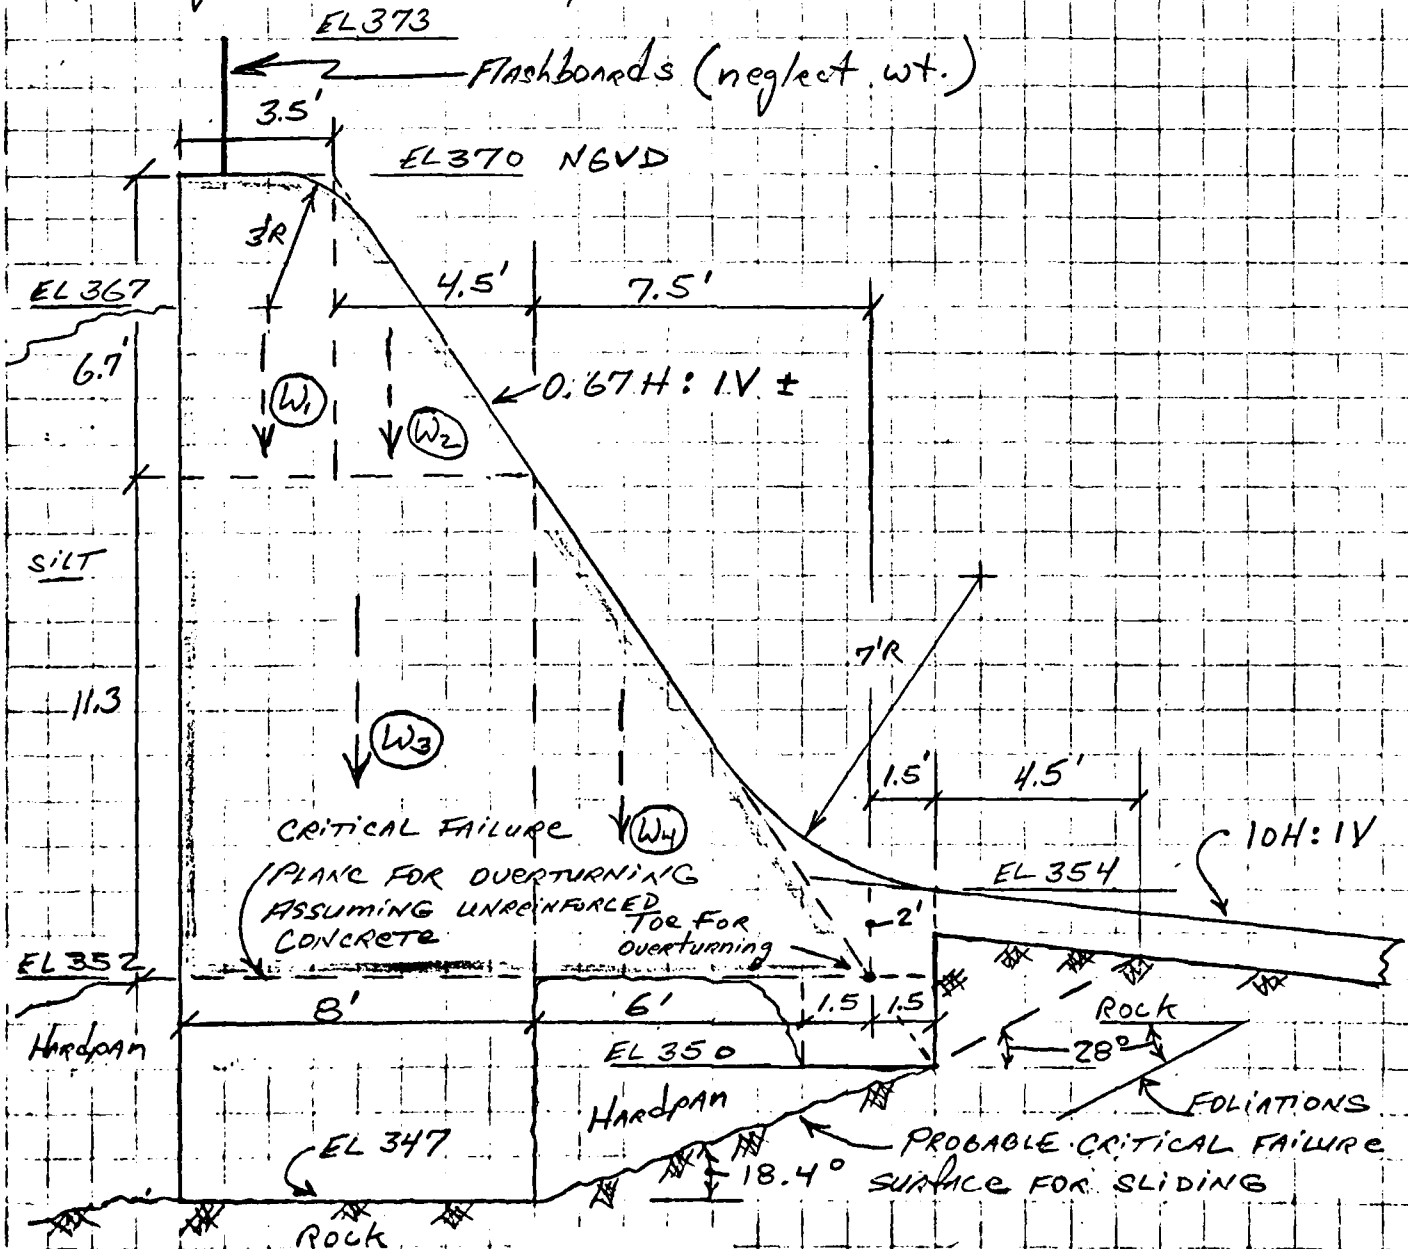 EL 373
Flashboards (neglect wt.)
3.5'
EL 370 NGVD
3'R
EL 367
4.5'
7.5'
6.7'
0.67 H : 1V ±
W1
W2
SILT
7'R
11.3
W3
1.5'
4.5'
W4
10H : 1V
CRITICAL FAILURE
PLANE FOR OVERTURNING
ASSUMING UNREINFORCED
CONCRETE
EL 354
TOE FOR
OVERTURNING
2'
EL 352
8'
6'
1.5
1.5
ROCK
HARDPAN
EL 350
28°
HARDPAN
FOLIATIONS
EL 347
PROBABLE CRITICAL FAILURE
SURFACE FOR SLIDING
18.4°
ROCK